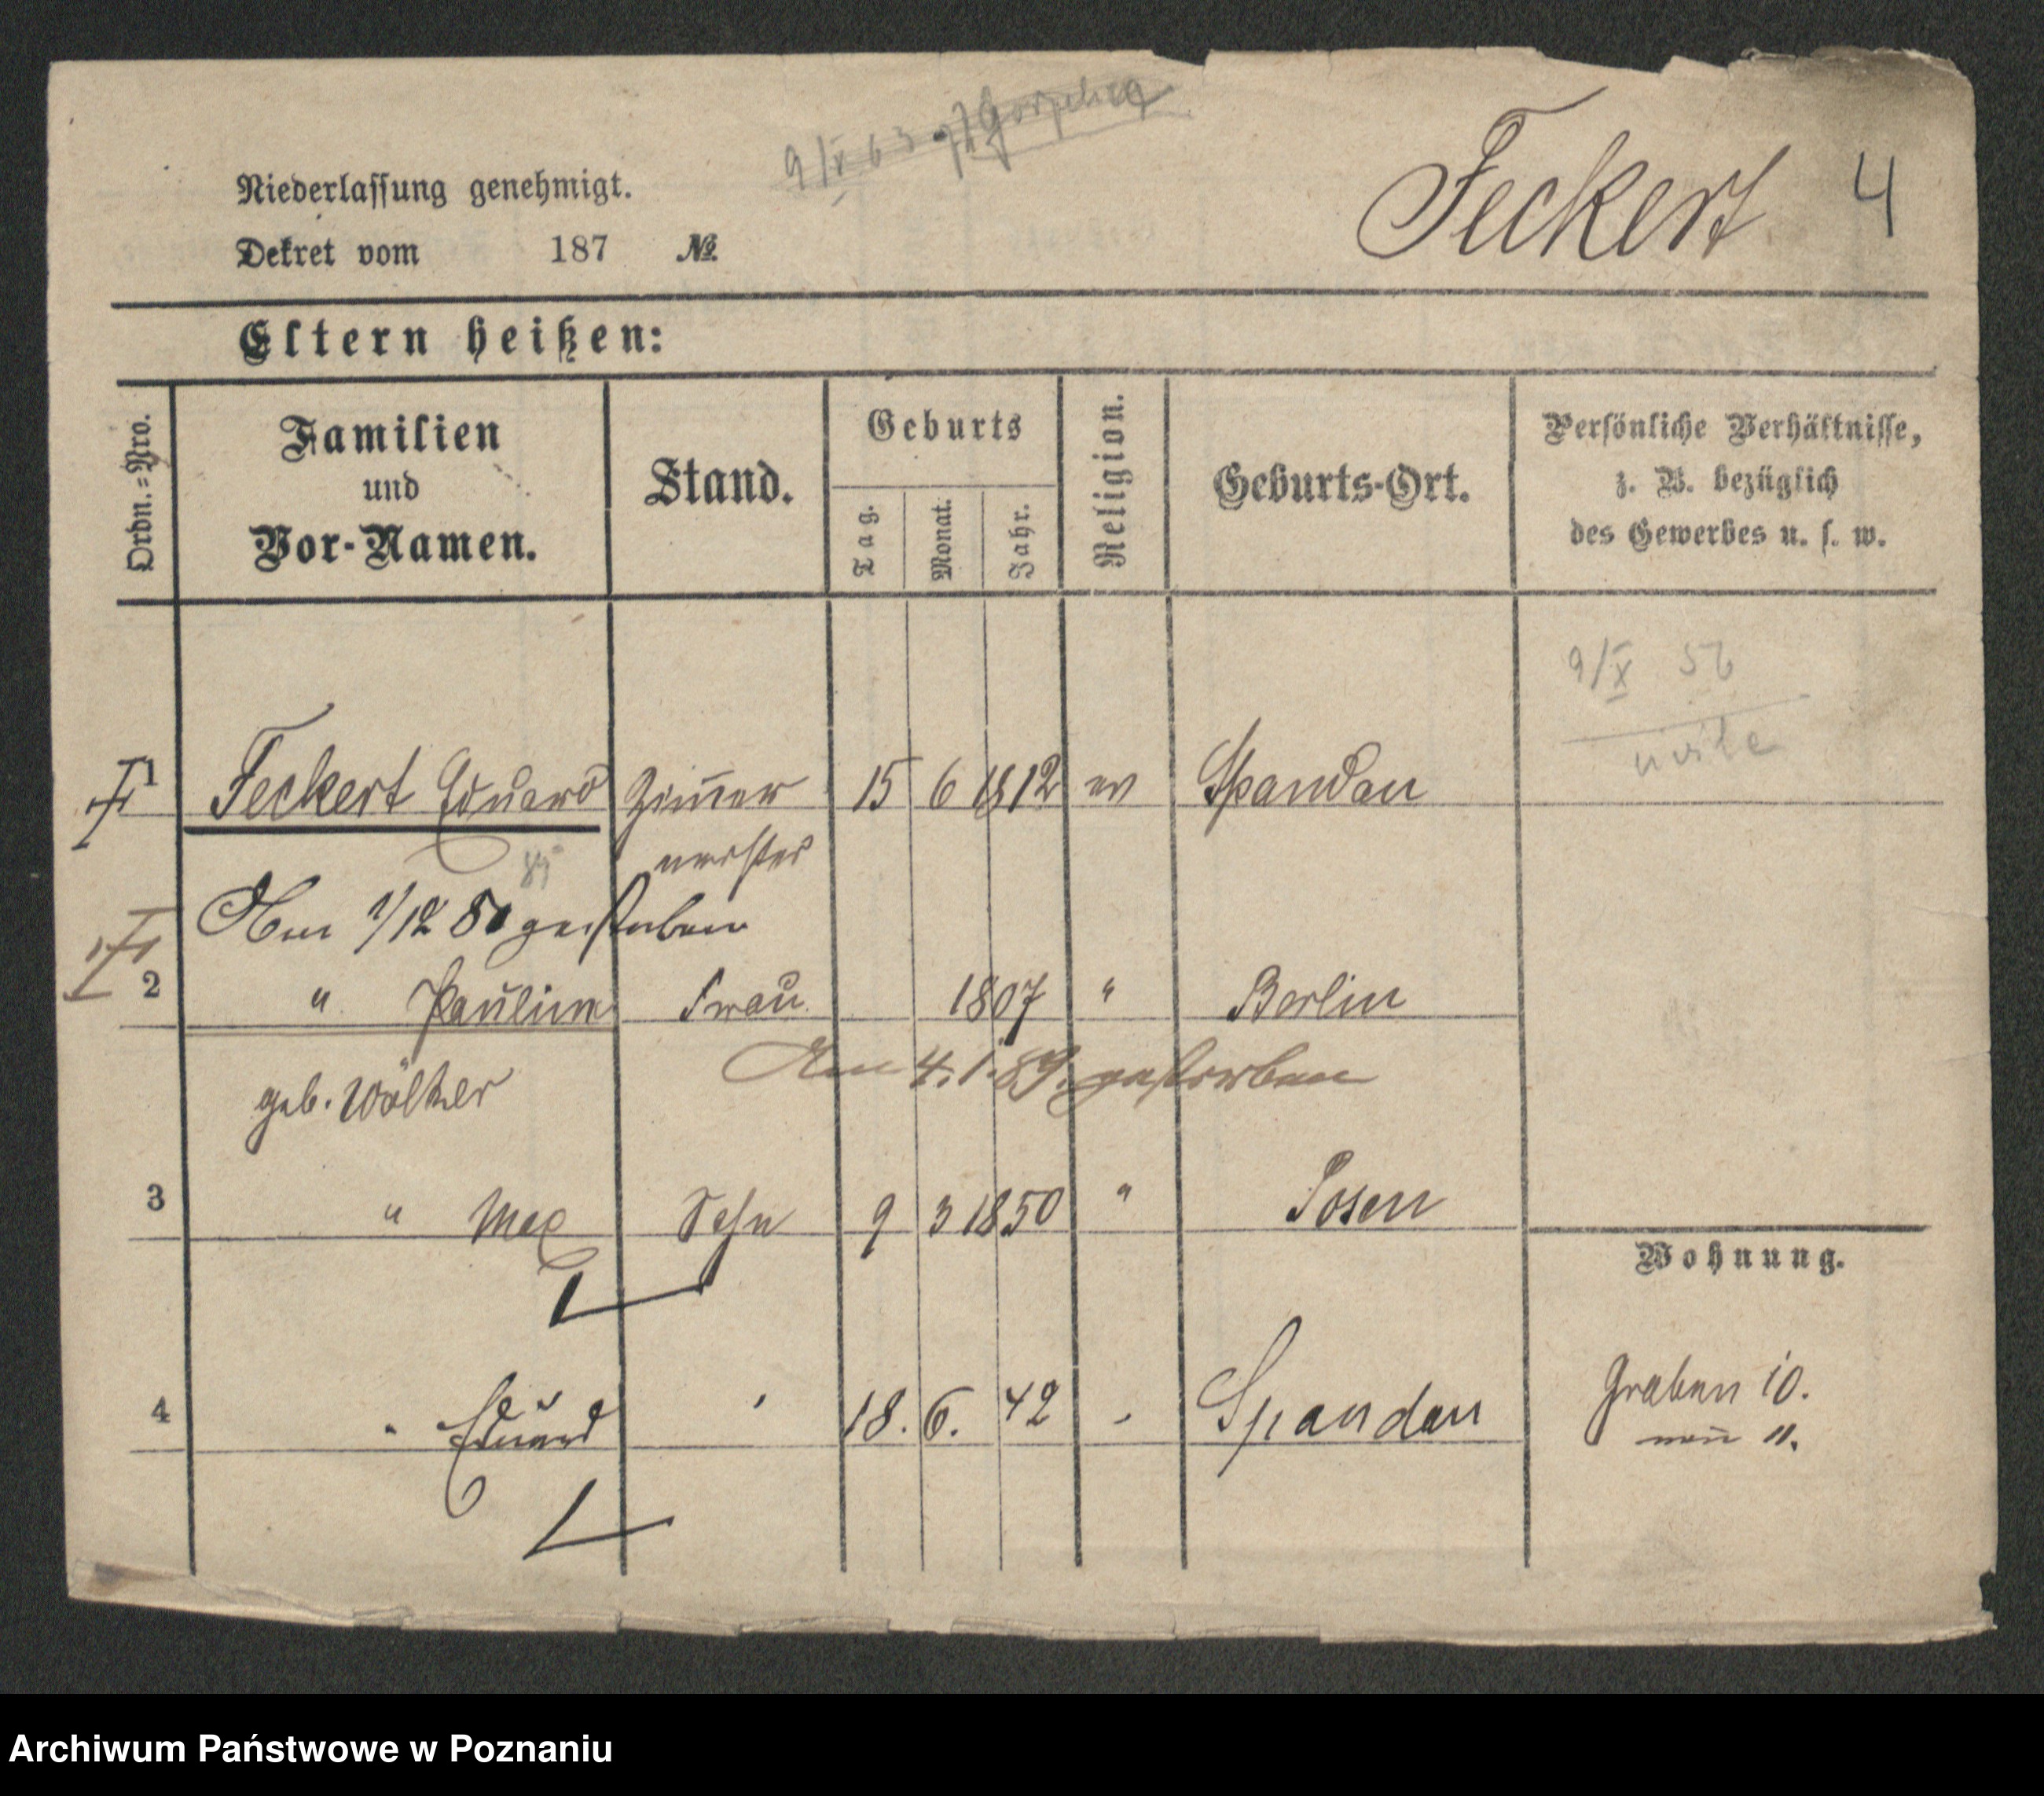 Niederlassung genehmigt.
Dekret vom 187 №
Feckert 4
Eltern heißen:
Ordn.-Nro.
Familien
und
Vor-Namen.
Stand.
Geburts
Tag.
Monat.
Jahr.
Religion.
Geburts-Ort.
Persönliche Verhältnisse,
z. B. bezüglich
des Gewerbes u. s. w.
9/X 56
1 Feckert Eduard Zim̄er 15 6 1812 ev Spandau
meister
Am 1/12 80 gestorben
2 " Pauline Frau 1807 " Berlin
Am 4.1.89. gestorben
geb. Wölker
3 " Max Sohn 9 3 1850 " Posen
Wohnung.
4 " Eduard ' 18. 6. 42 - Spandau
Graben 10.
neu 11.
Archiwum Państwowe w Poznaniu